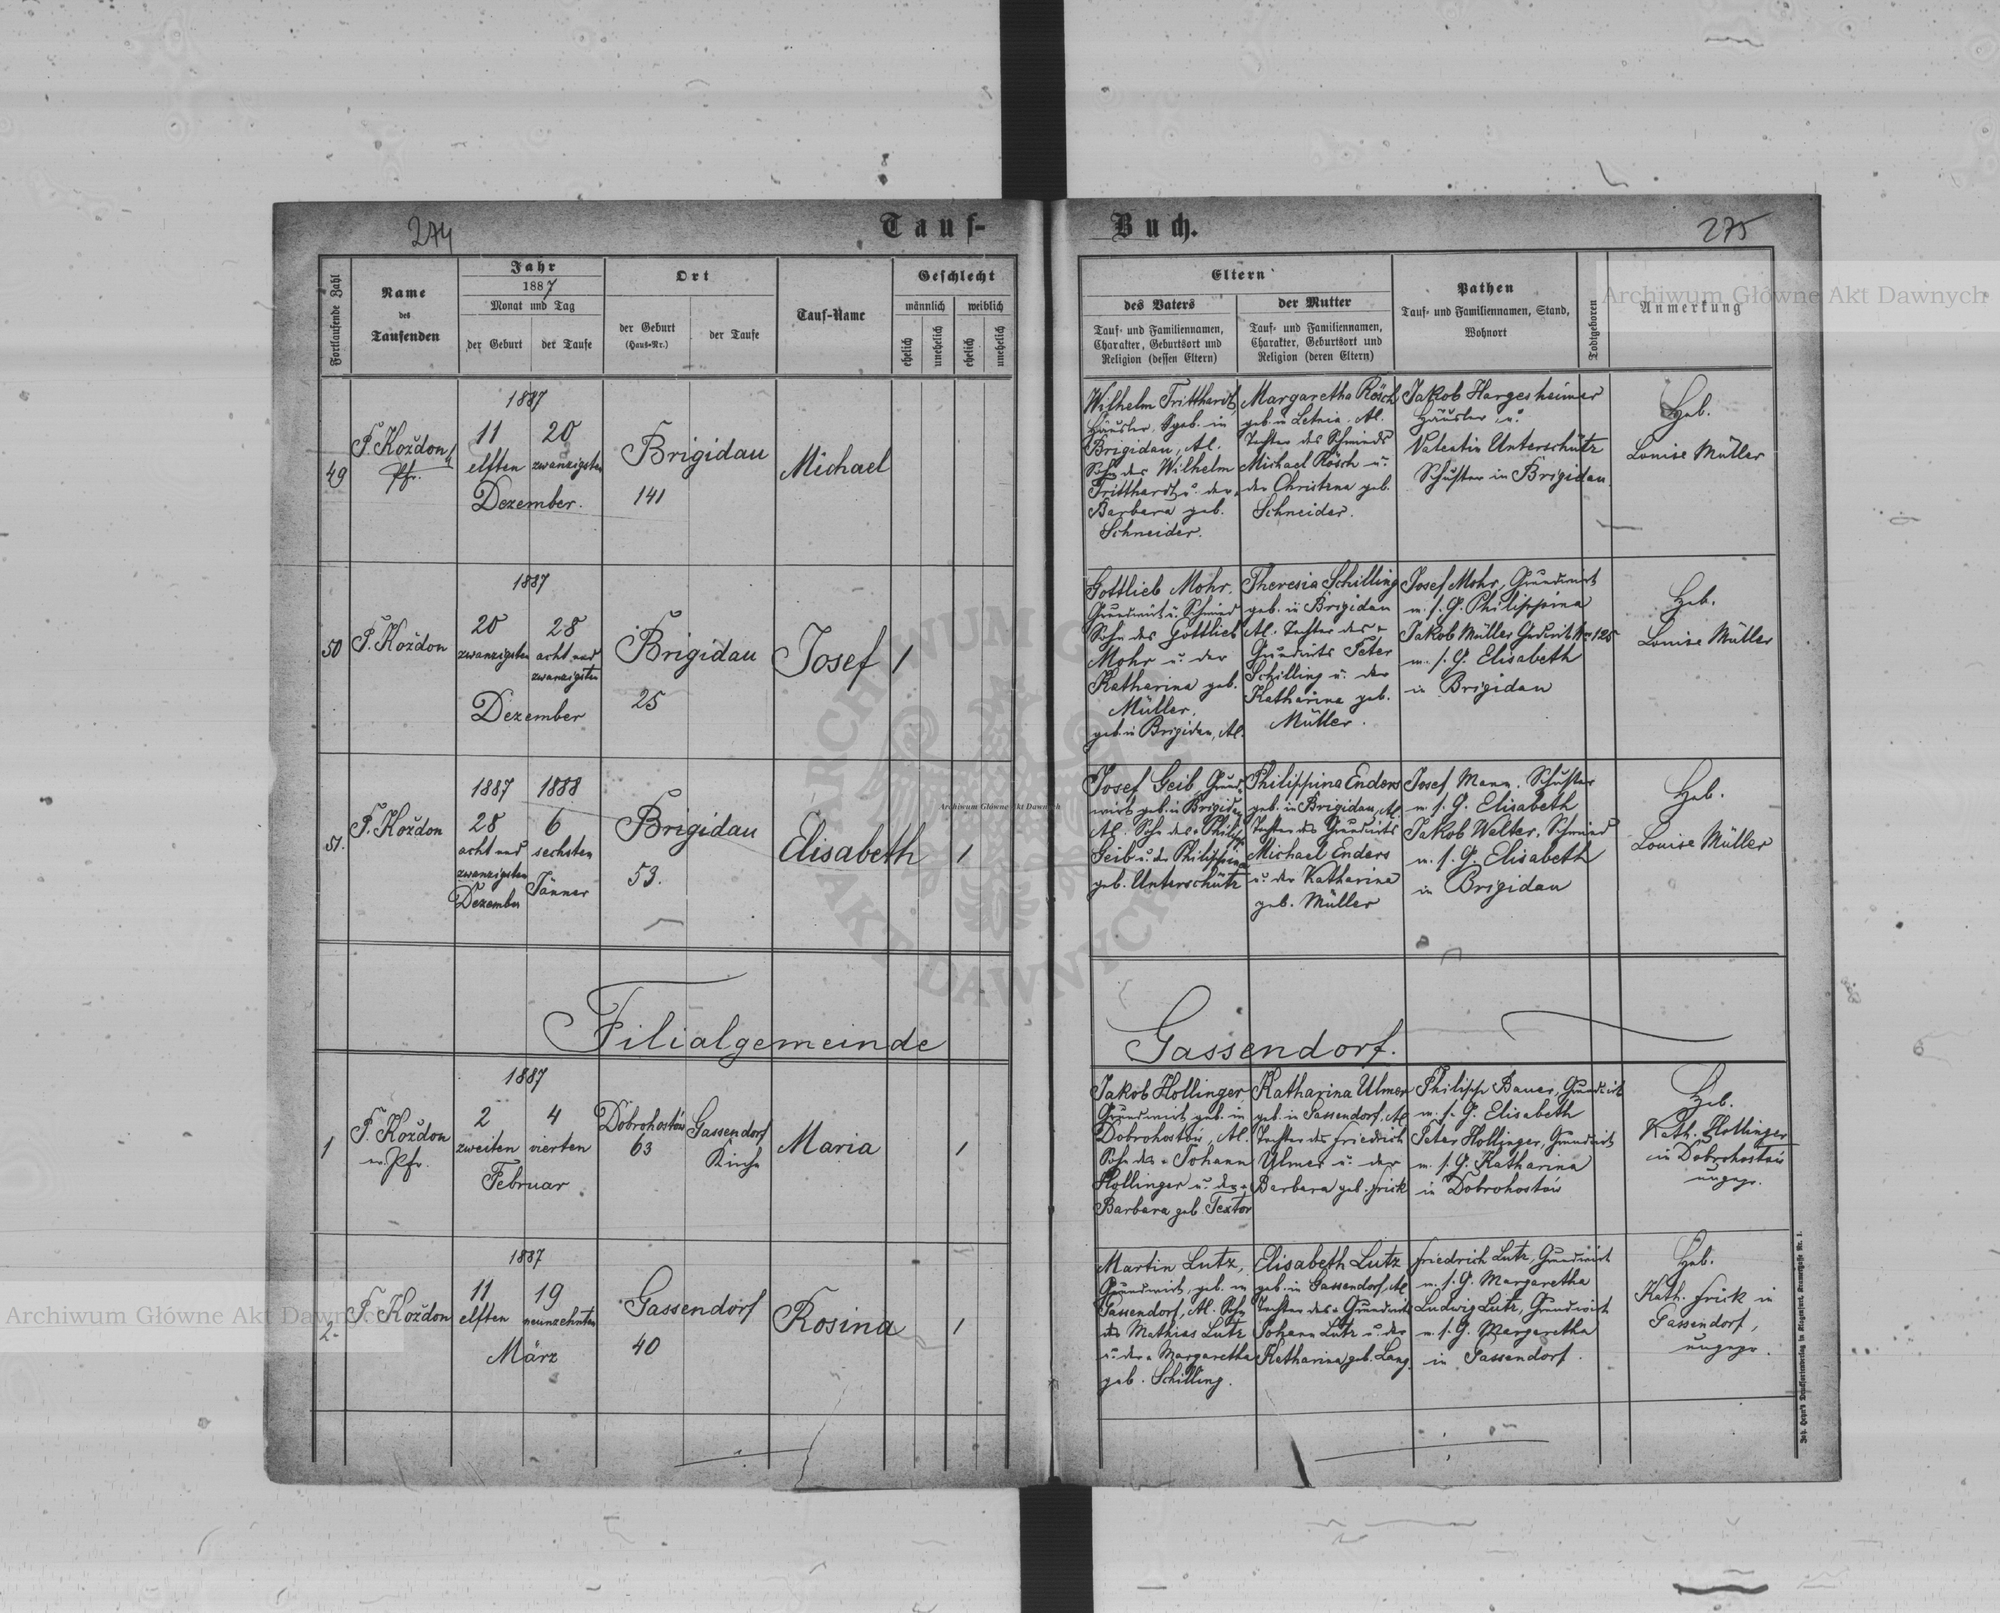 274
Tauf-
Buch.
275
Fortlaufende Zahl
Name
des
Taufenden
Jahr
1887
Monat und Tag
der Geburt
der Taufe
Ort
der Geburt
(Haus-Nr.)
der Taufe
Tauf-Name
Geschlecht
männlich
weiblich
ehelich
unehelich
ehelich
unehelich
Eltern
des Vaters
Tauf- und Familiennamen,
Charakter, Geburtsort und
Religion (dessen Eltern)
der Mutter
Tauf- und Familiennamen,
Charakter, Geburtsort und
Religion (deren Eltern)
Pathen
Tauf- und Familiennamen, Stand,
Wohnort
Todtgeboren
Anmerkung
49
F. Koždon
Pfr.
1887
11
elften
20
zwanzigsten
Dezember.
Brigidau
141
Michael
Wilhelm Tritthardt
Häusler, geb. in
Brigidau, Al.
Sohn des Wilhelm
Tritthardt u. der
Barbara geb.
Schneider.
Margaretha Rösch
geb. in Letnia, Al.
Tochter des Schmieds
Michael Rösch u.
der Christina geb.
Schneider.
Jakob Hargesheimer
Häusler, u.
Valentin Unterschütz
Schuster in Brigidau.
Heb.
Louise Müller
50
F. Koždon
1887
20
zwanzigsten
28
acht und
zwanzigsten
Dezember
Brigidau
25
Josef
1
Gottlieb Mohr,
Grundwirt u. Schmied
Sohn des Gottlieb
Mohr u. der
Katharina geb.
Müller,
geb. in Brigidau, Al.
Theresia Schilling
geb. in Brigidau
Al. Tochter des +
Grundwirts Peter
Schilling u. der
Katharina geb.
Müller.
Josef Mohr, Grundwirt
m. s. G. Philippina
Jakob Müller Grdwirt Nr 125
m. s. G. Elisabeth
in Brigidau
Heb.
Louise Müller
51.
F. Koždon
1887
28
acht und
zwanzigsten
Dezember
1888
6
sechsten
Jänner
Brigidau
53.
Elisabeth
1
Josef Geib, Grund-
wirt, geb. in Brigidau
Al. Sohn des + Philipp
Geib u. der Philippina
geb. Unterschütz
Philippina Enders
geb. in Brigidau, Al.
Tochter des Grundwirts
Michael Enders
u. der Katharina
geb. Müller
Josef Mann, Schuster
m. s. G. Elisabeth
Jakob Walter, Schmied
m. s. G. Elisabeth
in Brigidau
Heb.
Louise Müller
Filialgemeinde
Gassendorf.
1
F. Koždon
Pfr.
1887
2
zweiten
4
vierten
Februar
Dobrohostów
63
Gassendorf
Kirche
Maria
1
Jakob Hollinger
Grundwirt, geb. in
Dobrohostów, Al.
Sohn des + Johann
Hollinger u. der +
Barbara geb. Textor
Katharina Ulmer
geb. in Gassendorf, Al
Tochter des Friedrich
Ulmer u. der
Barbara geb. Frick
Philipp Bauer, Grundwirt
m. s. G. Elisabeth
Peter Hollinger, Grundwirt
m. s. G. Katharina
in Dobrohostów
Heb.
Kath. Hollinger
in Dobrohostów
ungepr.
2.
F. Koždon
1887
11
elften
19
neunzehnten
März
Gassendorf
40
Rosina
1
Martin Lutz,
Grundwirt, geb. in
Gassendorf, Al. Sohn
des Mathias Lutz
u. der + Margaretha
geb. Schilling.
Elisabeth Lutz
geb. in Gassendorf, Al
Tochter des + Grundwirts
Johann Lutz u. der
Katharina geb. Lang.
Friedrich Lutz, Grundwirt
m. s. G. Margaretha
Ludwig Lutz, Grundwirt
m. s. G. Margaretha
in Gassendorf.
Heb.
Kath. Frick in
Gassendorf,
ungepr.
Archiwum Główne Akt Dawnych
Archiwum Główne Akt Dawnych
Archiwum Główne Akt Dawnych
ARCHIWUM GŁÓWNE AKT DAWNYCH